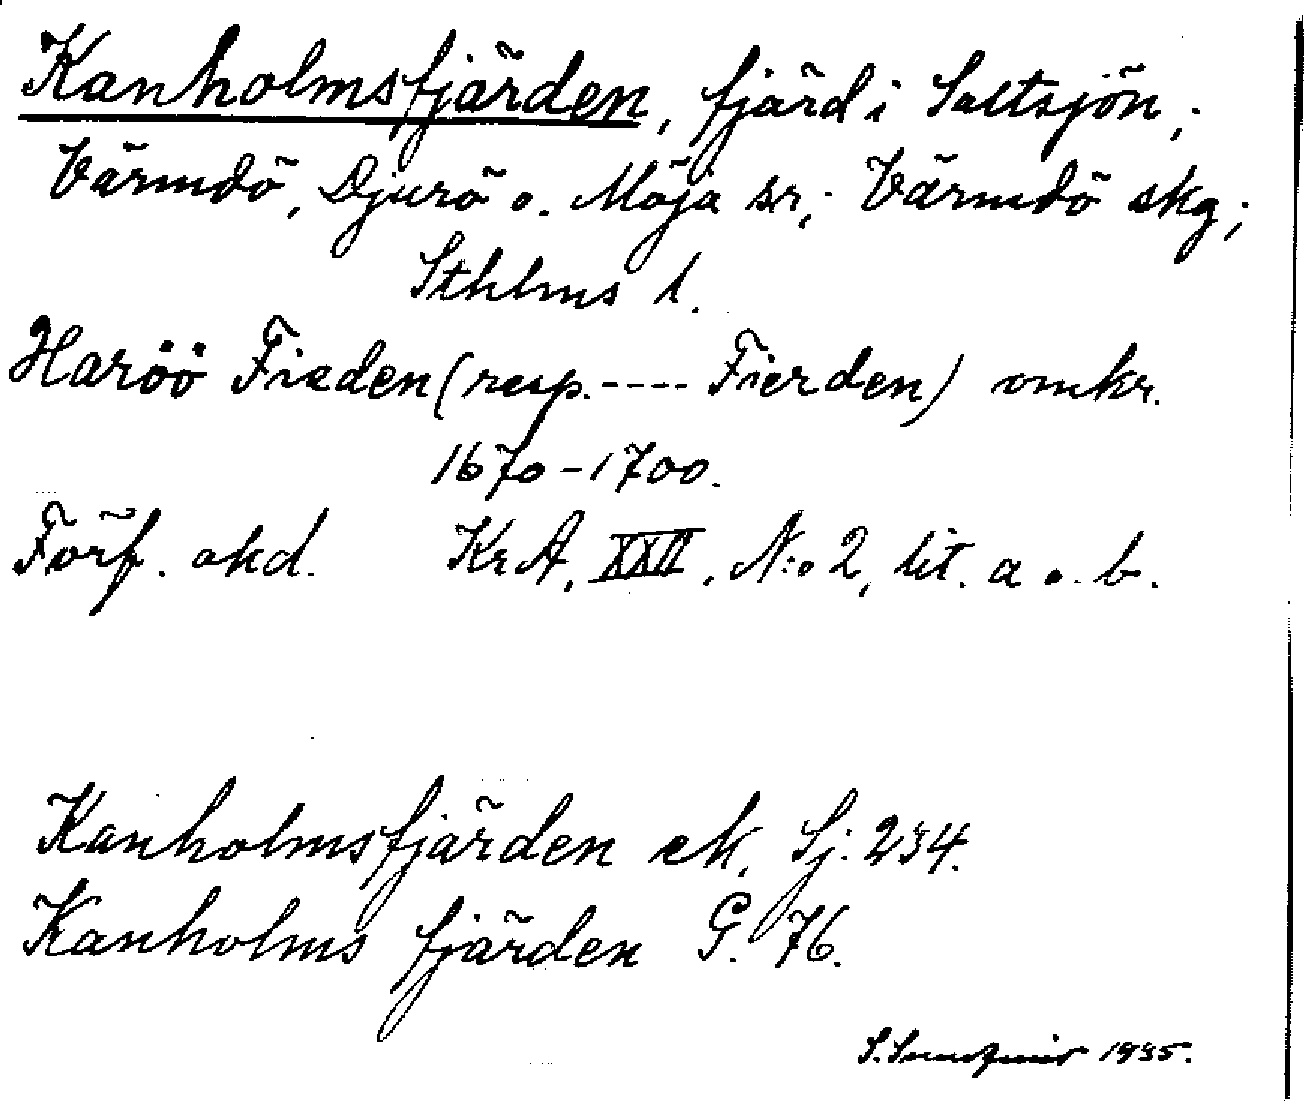 Kanholmsfjärden, fjärd i Saltsjön,;
Värmdö, Djurö o. Möja sr,; Värmdö skg;
Sthlms l.
Haröö Fieden (resp. ---- Fierden) omkr.
1670-1700.
Förf. okd. KrA, XXII, N:o 2, lit. a o. b.
Kanholmsfjärden ek, Sj: 234.
Kanholms fjärden G. 76.
1935.